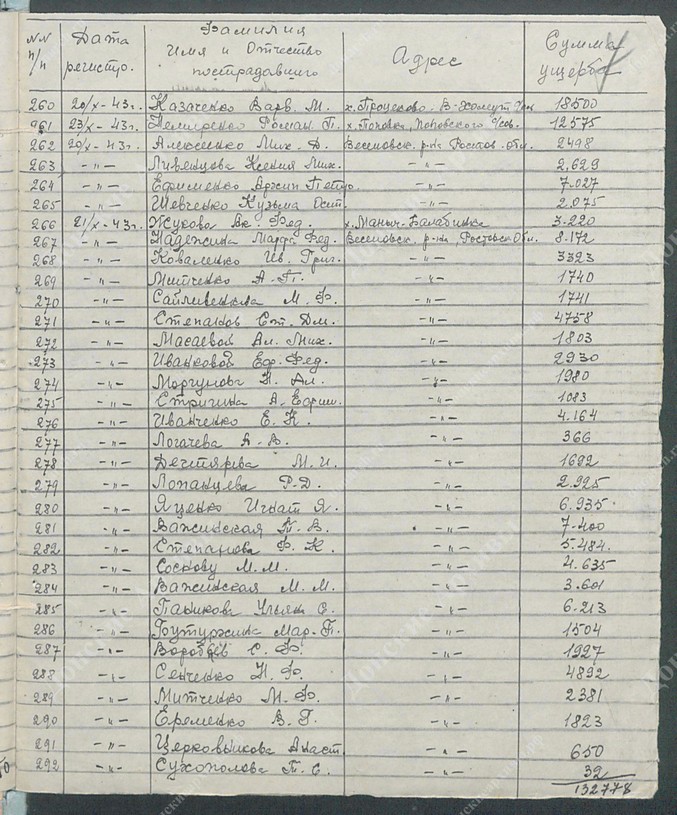 NN п/п Дата регистр. Фамилия Имя и Отчество пострадавшего Адрес Сумма ущерба
260 20/X-43г. Казаченко Варв. М. х. Процеково. В-Хомут 18500
261 23/X-43г. Немиренко Роман. П. х. Поповка, Поповского 12575
262 20/X-43г. Алексенко Мих. Д. Веселовск. р-на Ростов. обл. 2498
263 -"- Ливенцова Ксения Мих. -"- 2.629
264 -"- Ефименко Архип Петро -"- 7.027
265 -"- Шевченко Кузьма Осип. -"- 2.075
266 21/X-43г. Жукова Фед. х. Маныч-Балабинка 3.220
267 -"- Надежина Марфа Фед. Веселовск. р-на, Ростовск. Обл. 8.172
268 -"- Коваленко Ив. Григ. -"- 3323
269 -"- Митченко А. П. -"- 1740
270 -"- М. Ф. -"- 1741
271 -"- Степанов Ст. Дм. -"- 4758
272 -"- Масаевой Ал. Мих. -"- 1803
273 -"- Иванковой Еф. Фед. -"- 2930
274 -"- Моргунова Н. Ал. -"- 1980
275 -"- Стригина А. Ефим. -"- 1083
276 -"- Иванченко Е. К. -"- 4.164
277 -"- Логачева А. В. -"- 366
278 -"- Дегтярева М. И. -"- 1692
279 -"- Лопанцева Р. Д. -"- 2.925
280 -"- Яценко Игнат Я. -"- 6.935
281 -"- Важинская Т. В. -"- 7.400
282 -"- Степанова Ф. К. -"- 5.484.
283 -"- Соскову М. М. -"- 4.635
284 -"- Важинская М. М. -"- 3.601
285 -"- Паникова Ульяна С. -"- 6.213
286 -"- Бутуржина Мар. П. -"- 1504
287 -"- Воробьев С. Ф. -"- 1927
288 -"- Сенченко Н. Ф. -"- 4892
289 -"- Митченко М. Ф. -"- 2381
290 -"- Еременко В. Г. -"- 1823
291 -"- Церковникова Анаст. -"- 650
292 -"- Сухополова Т. С. -"- 32
132778